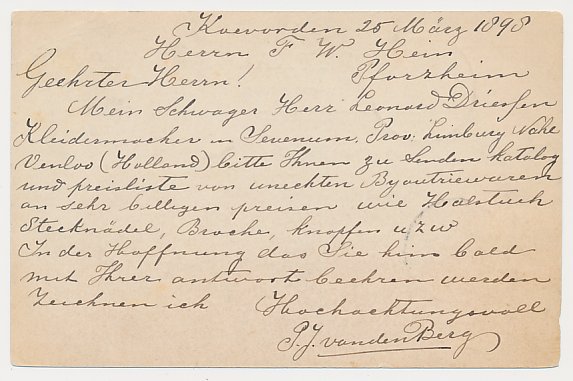 Koevorden 25 März 1898
Herrn F. W. Hein
Pforzheim
Geehrter Herrn!
Mein Schwager Herr Leonard Driessen
Kleidermacher in Sevenum, Prov: Limburg Nahe
Venloo (Holland) bitte Ihnen zu senden katalog
und preisliste von unechten Byoutriewaren
an sehr billigen preisen wie Halstuch
Stecknädel, Broche, knopfen uzw
In der Hoffnung das Sie him bald
mit Ihrer antwort beehren werden
Zeichnen ich Hochachtungsvoll
P. J. vanden Berg